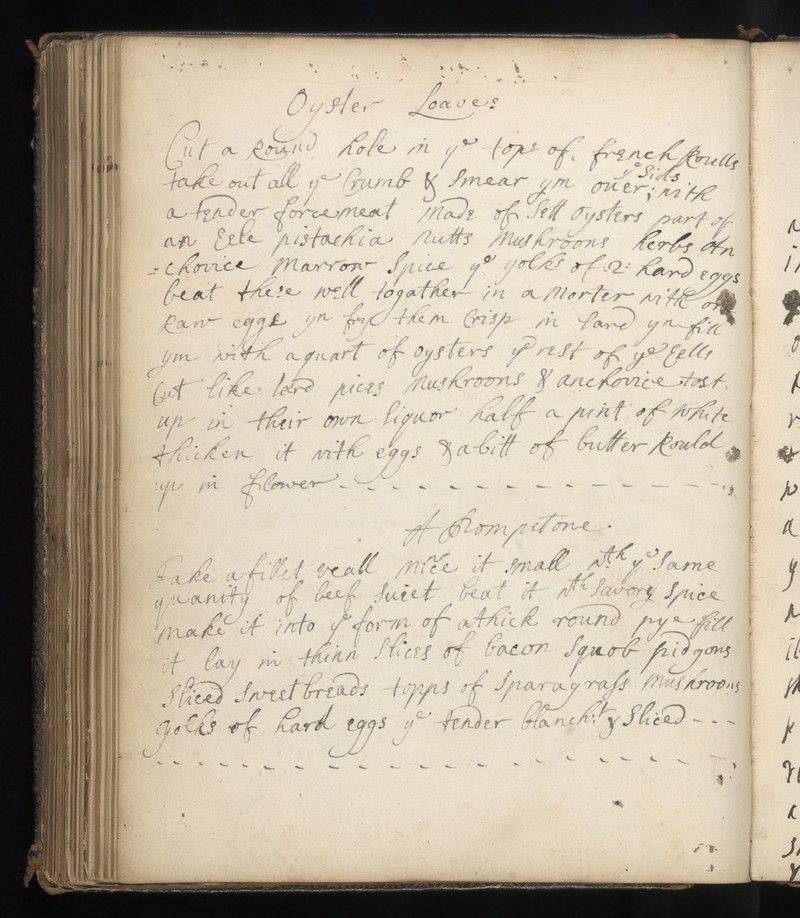 Oyster Loaves
Cut a Round hole in ye tops of. french Roulls
take out all ye Crumb & Smear ym over; ye Sids with
a tender forcemeat made of Sett oysters part of
an Eele pistachia nutts Mushroons herbs An
=chovice Marrow Spice ye yolks of :2: hard eggs
beat these well togather in a Morter with one
Raw egge yn fry them Crisp in lard yn fill
ym with a quart of oysters ye rest of ye Eells
Cut like lard pices Mushroons & anchovice tost
up in their own liquor half a pint of white
thicken it with eggs & a bitt of butter Rould
up in flower
A Pompetone.
Take a fillet veall mince it small wth ye Same
quanity of beef Suiet beat it wth Savory Spice
make it into ye form of a thick round pye fill
it lay in thinn Slices of bacon Squob pidgons
Sliced Sweetbreads topps of Sparagrass Mushroons
yolks of hard eggs ye tender blanch:t & Sliced